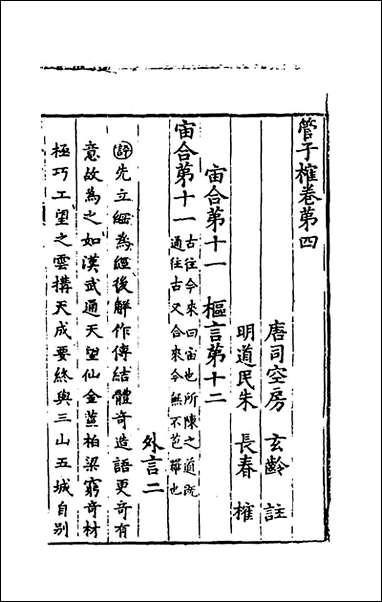 管子榷卷第四
唐司空房 玄齡 註
明道民朱 長春 榷
宙合第十一 樞言第十二
宙合第十一 古往今來曰宙也所陳之道既
通往古又合來今無不苞羅也
外言二
評先立綱為經後解作傳結體奇造語更奇有
意故為之如漢武通天望仙金莖柏梁窮奇材
極巧工望之雲搆天成要終與三山五城自別